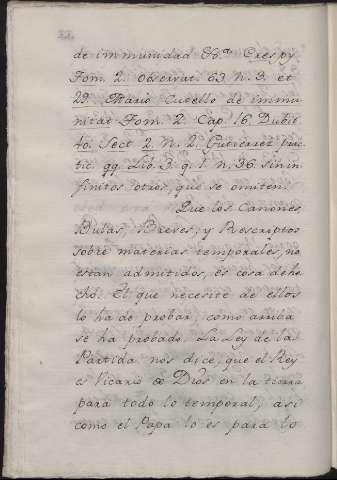 de immunidad &c.ª Crespy
Tom. 2. observat. 63. n. 3. et
29. Mario Cutello de immu
nitat. Tom. 2. Cap. 16. Dubit
40. Sect. 2. n. 2. Gutierrez prac
tic. qq. Lib. 3. q. 1. n. 36. sin in
finitos otros, que se omiten.
Que los Canones,
Bulas, Breves, y Rescriptos
sobre materias temporales, no
estan admitidos, es cosa de he
cho. El que necesite de ellos
lo ha de probar, como arriba
se ha probado. La Ley de la
Partida nos dice, que el Rey
es Vicario de Dios en la tierra
para todo lo temporal; asi
como el Papa lo es para lo